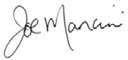 Joe Mancini